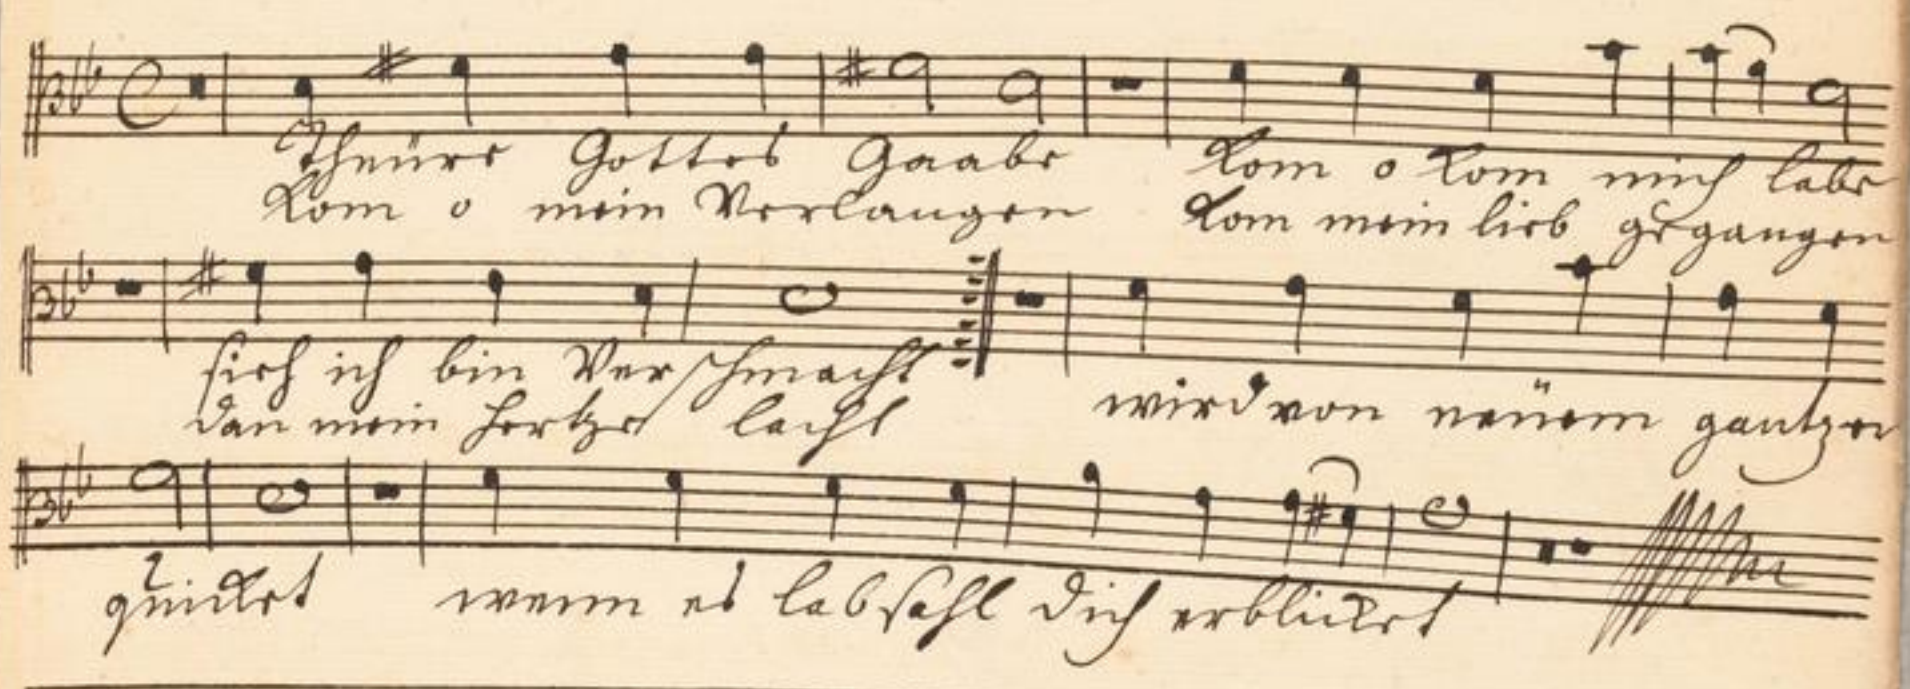 Theüre Gottes Gaabe Kom o Kom mich labe
Kom o mein Verlangen Kom mein lieb gegangen
sieh ich bin Verschmacht
dan mein hertze lacht wird von neüem gantzen
quicket wenn es labsahl dich erblicket